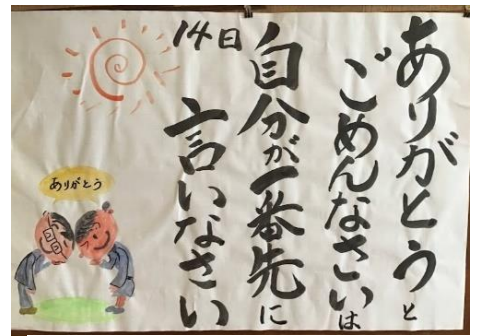 ありがとうと
ごめんなさいは
自分が一番先に
言いなさい
14日
ありがとう